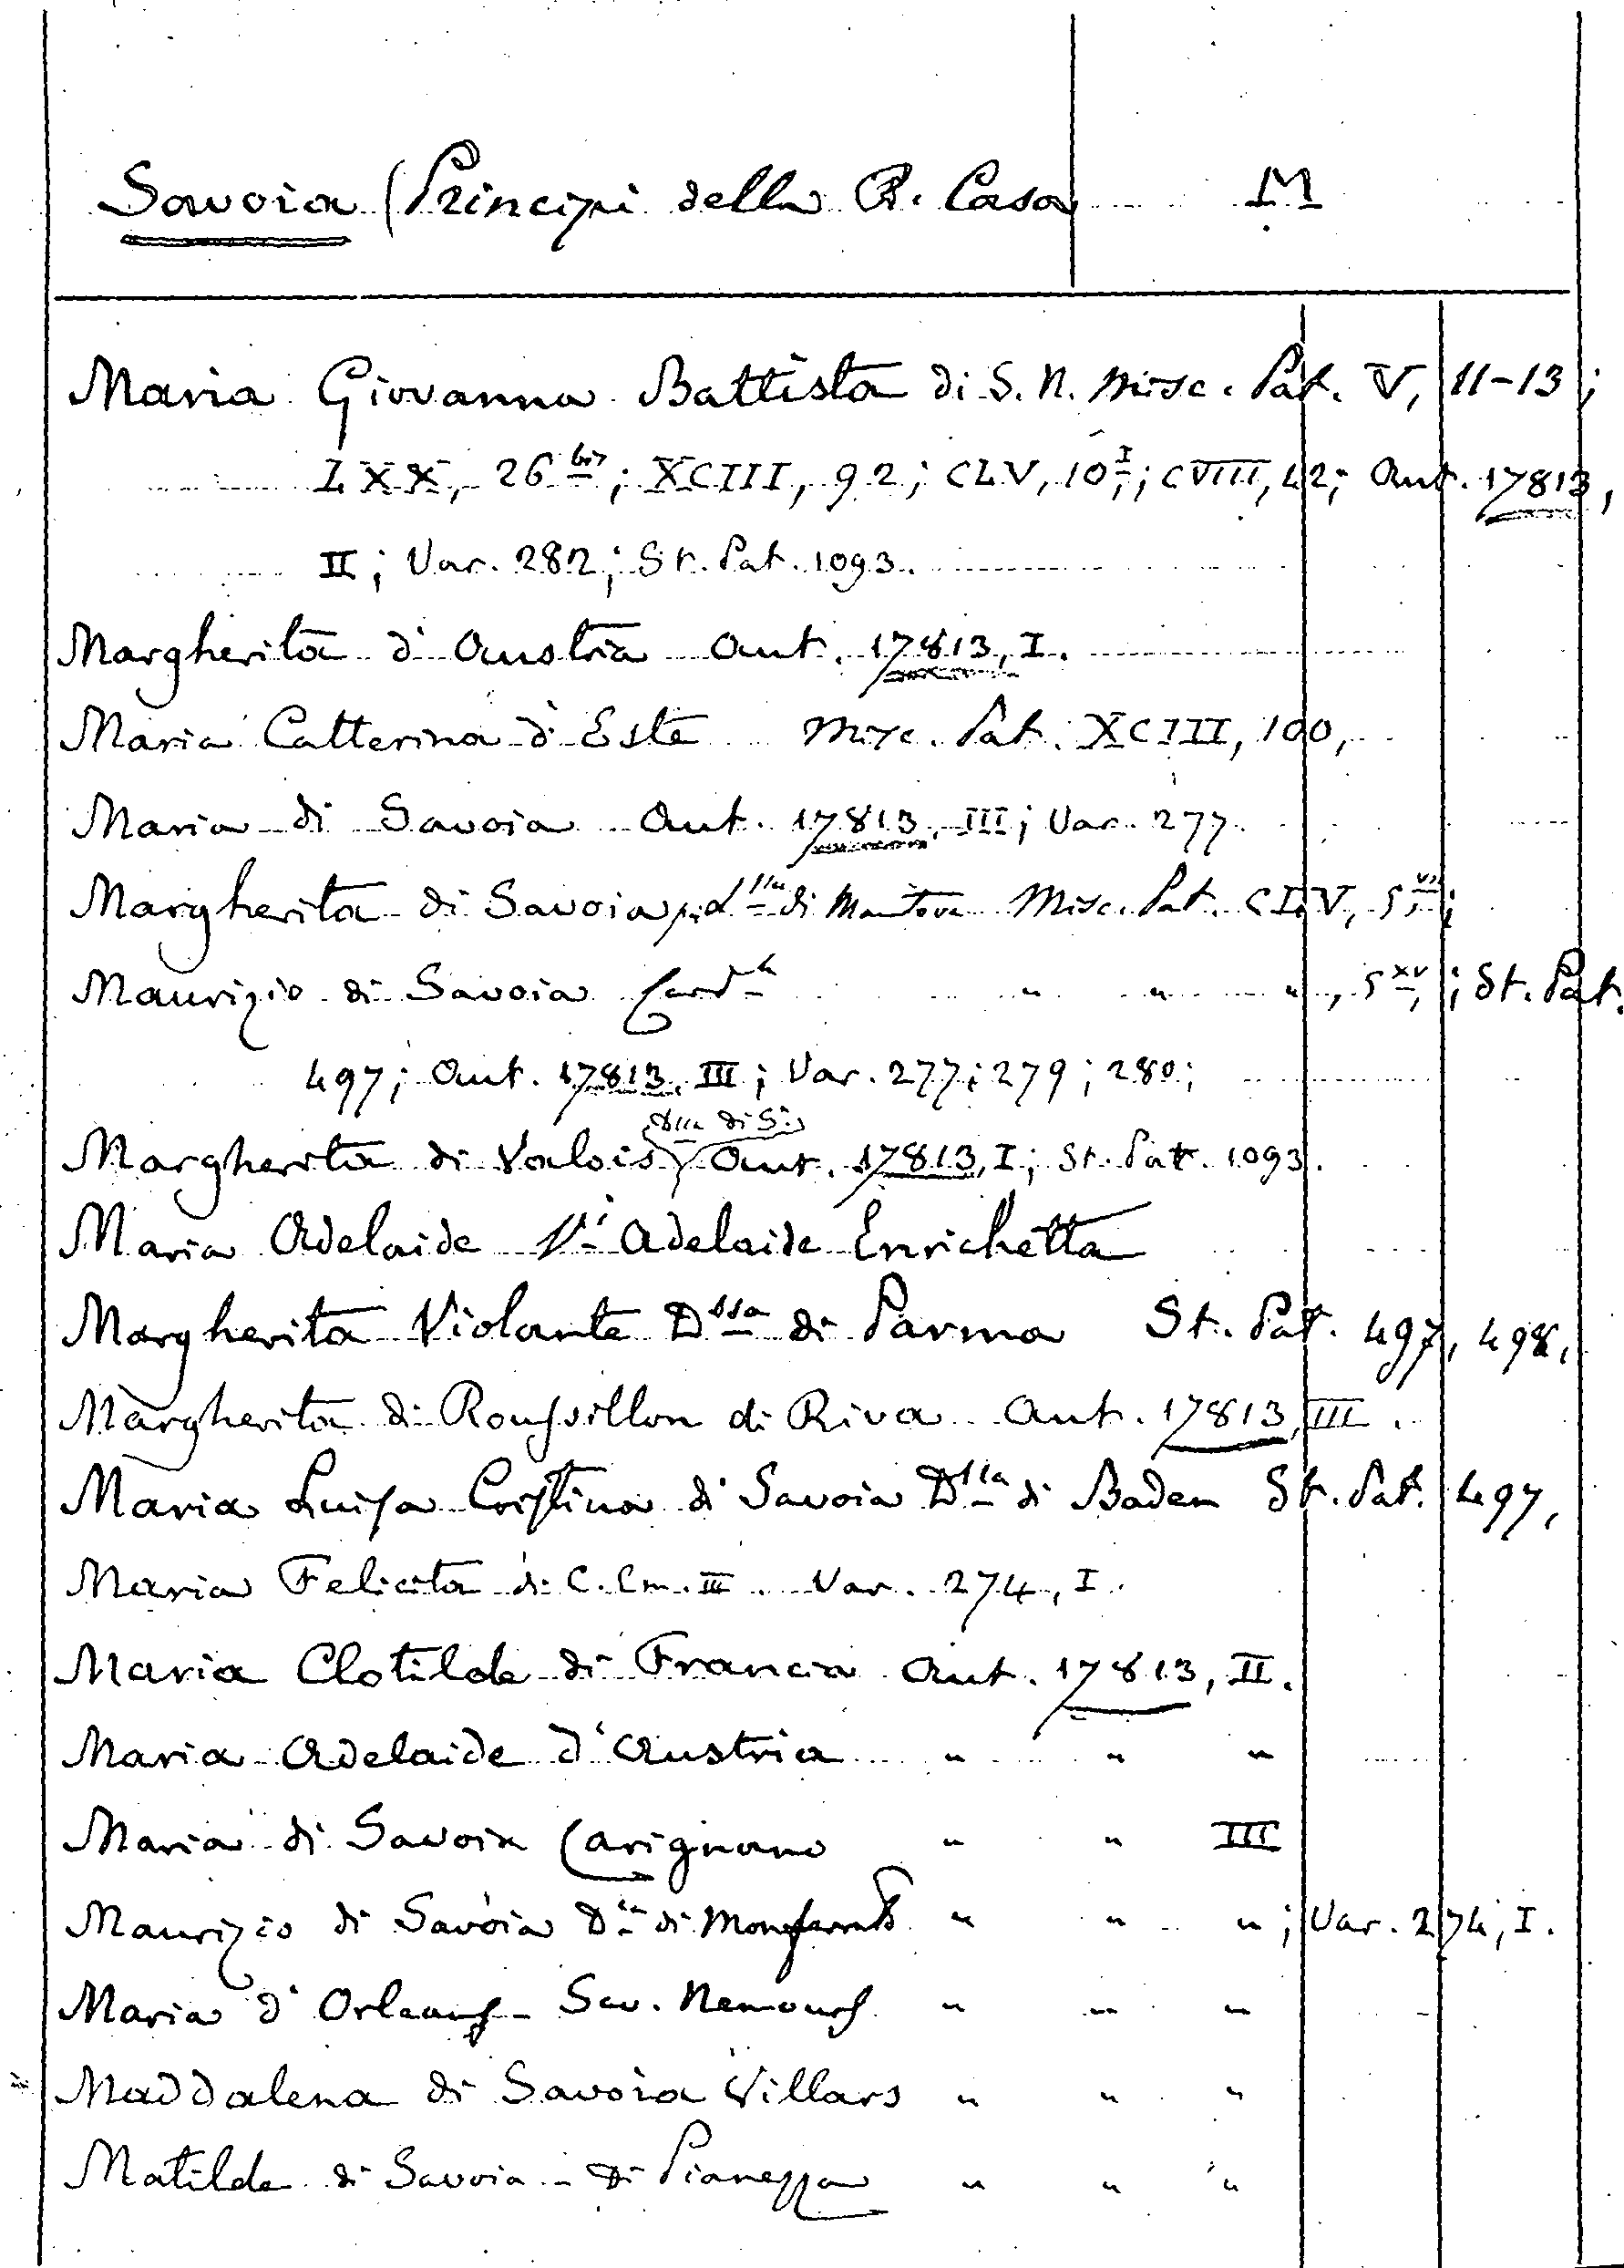 Savoia (Principi della R. Casa M
Maria Giovanna Battista di S. N. Misc. Pat. V, 11-13;
LXX, 26 bis; XCIII, 92; CLV, 10 I; CVIII, 42; Aut. 17813,
II; Var. 282; St. Pat. 1093.
Margherita d'Austria Aut. 17813, I.
Maria Catterina d'Este Misc. Pat. XCIII, 100,
Maria di Savoia Aut. 17813, III; Var. 277.
Margherita di Savoia di Mantova Misc. Pat. CLV, 5 VII;
Maurizio di Savoia Card.le " " ", 5 XV; St. Pat.
497; Aut. 17813, III; Var. 277; 279; 280;
Dssa di S.
Margherita di Valois Aut. 17813, I; St. Pat. 1093.
Maria Adelaide Vi Adelaide Enrichetta
Margherita Violante Dssa di Parma St. Pat. 497, 498,
Margherita di Roussillon di Riva Aut. 17813, III.
Maria Luisa Cristina di Savoia Dssa di Baden St. Pat. 497,
Maria Felicita di C. Em. III Var. 274, I.
Maria Clotilde di Francia Aut. 17813, II.
Maria Adelaide d'Austria " " "
Maria di Savoia Carignano " " III
Maurizio di Savoia Dca di Monferrato " " "; Var. 274, I.
Maria d'Orleans - Sav. Nemours " " "
Maddalena di Savoia Villars " " "
Matilde di Savoia - di Pianezza " " "